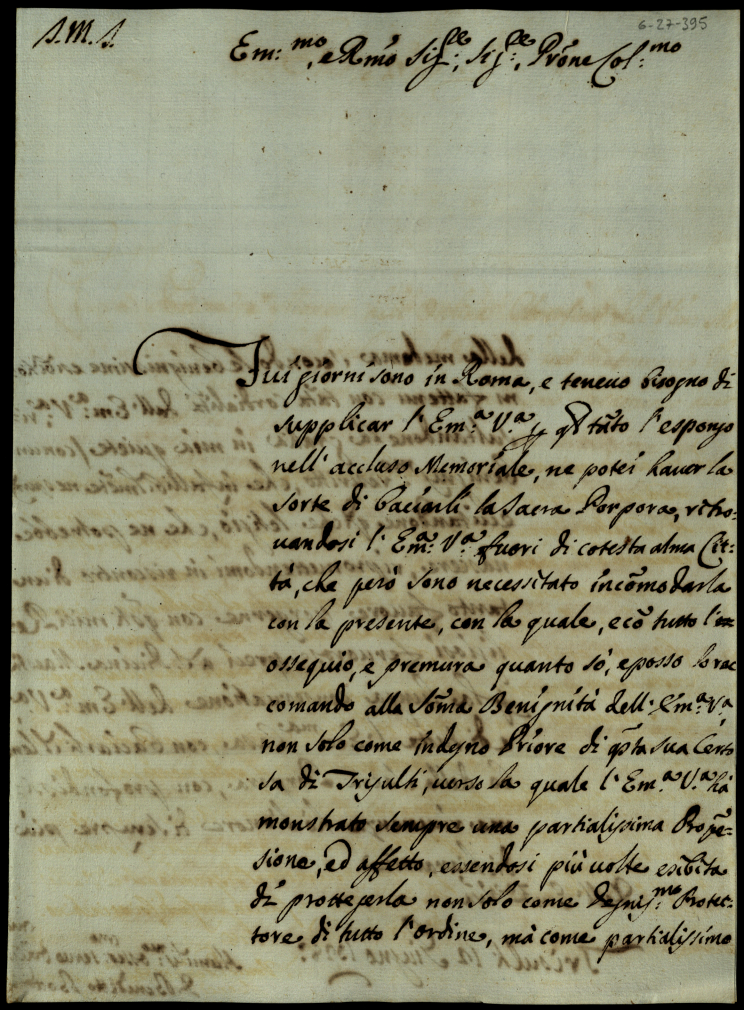 6-27-395
S. M. S.
Em:mo, e Rmo Sigre: Sigre:, Prõne Col:mo
Fui giorni sono in Roma, e teneuo bisogno di
supplicar l'Em:a V:a p qto tãto l'espongo
nell'accluso Memoriale, ne potei hauer la
sorte di baciarli la Sacra Porpora, ritro-
uandosi l'Em:a V:a fuori di cotesta alma Cit-
tà, che però sono necessitato incõmodarla
con la presente, con la quale, e cõ tutto l'
ossequio, e premura quanto sò, e posso la rac
comando alla Sõma Benignità dell'Em:a V:a,
non solo come Indegno Priore di qsta sua Certo
sa di Trisulti, uerso la quale l'Em:a V:a hà
monstrato sempre una partialissima Propẽ-
sione, ed affetto, essendosi più uolte esibita
di proteggerla non solo come Degnis:mo Protet-
tore di tutto l'ordine, mà come partialissimo